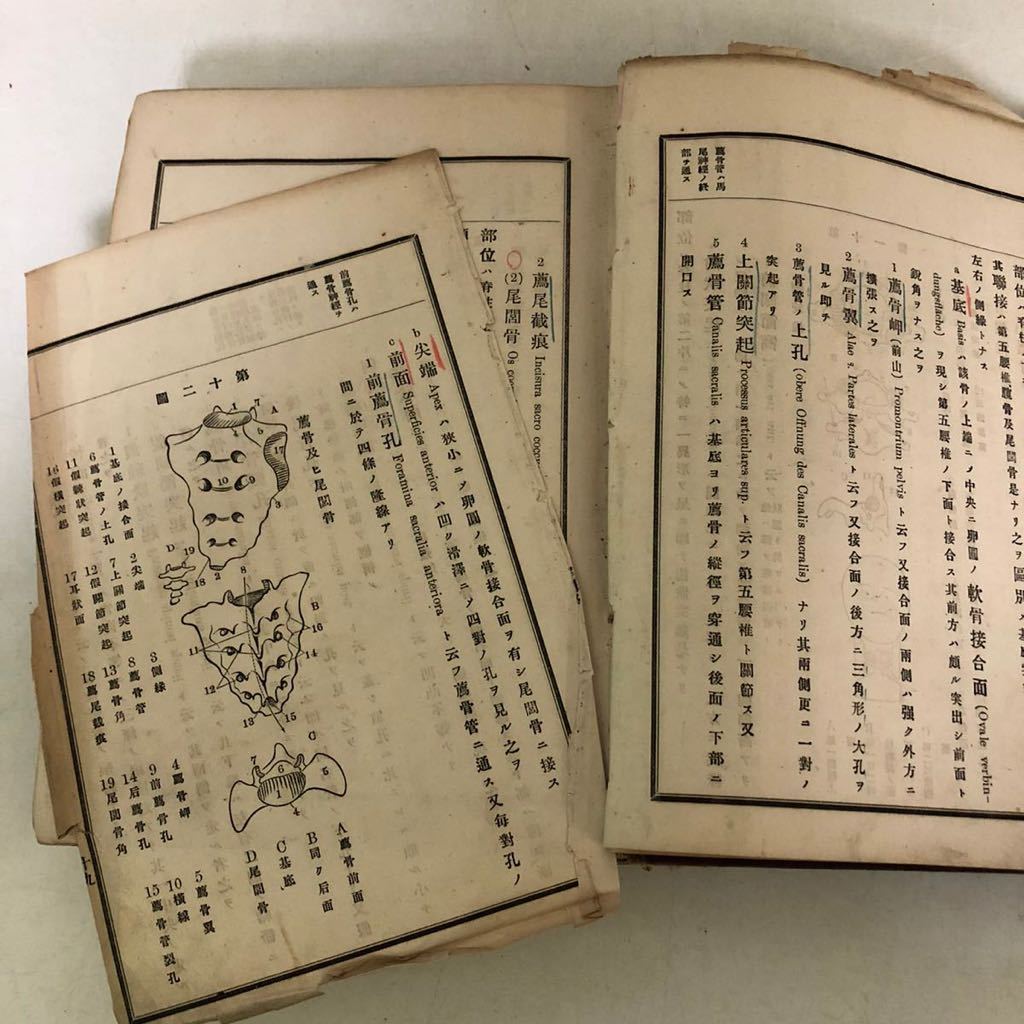 薦骨管ハ馬
尾神經ノ終
部ヲ通ス
左右ノ側緣トナス
a 基底 Basis ハ該骨ノ上端ニノ中央ニ卵圓ノ軟骨接合面(Ovale verbin-
dungsfläche) ヲ現シ第五腰椎ノ下面ト接合ス其前方ハ頗ル突出シ前面ト
銳角ヲナス之ヲ
1 薦骨岬(前山) Promontrium pelvis ト云フ又接合面ノ兩側ハ强ク外方ニ
擴張ス之ヲ
2 薦骨翼 Alae s. Partes laterales ト云フ又接合面ノ後方ニ三角形ノ大孔ヲ
見ル即チ
3 薦骨管ノ上孔 (obere Offnung des Canalis sacralis) ナリ其兩側更ニ一對ノ
突起アリ
4 上關節突起 Processus articulares sup. ト云フ第五腰椎ト關節ス又
5 薦骨管 Canalis sacralis ハ基底ヨリ薦骨ノ縱徑ヲ穿通シ後面ノ下部ニ
開口ス
2 薦尾截痕 Incisura sacro
(2) 尾閭骨 Os
部位ハ脊
前薦骨孔ハ
薦骨神經ヲ
通ス
b 尖端 Apex ハ狹小ニノ卵圓ノ軟骨接合面ヲ有シ尾閭骨ニ接ス
c 前面 Superficies anterior ハ凹ク滑澤ニノ四對ノ孔ヲ見ル之ヲ
1 前薦骨孔 Foramina sacralia anteriora ト云フ薦骨管ニ通ス又每對孔ノ
間ニ於テ四條ノ隆線アリ
第十二圖
薦骨及ヒ尾閭骨
A 薦骨前面
B 同ク后面
C 基底
D 尾閭骨
1 基底ノ接合面
2 尖端
3 側緣
4 薦骨岬
5 薦骨翼
6 薦骨管ノ上孔
7 上關節突起
8 薦骨管
9 前薦骨孔
10 橫線
11 假棘狀突起
12 假關節突起
13 薦骨角
14 后薦骨孔
15 薦骨管裂孔
16 假橫突起
17 耳狀面
18 薦尾截痕
19 尾閭骨角
十九